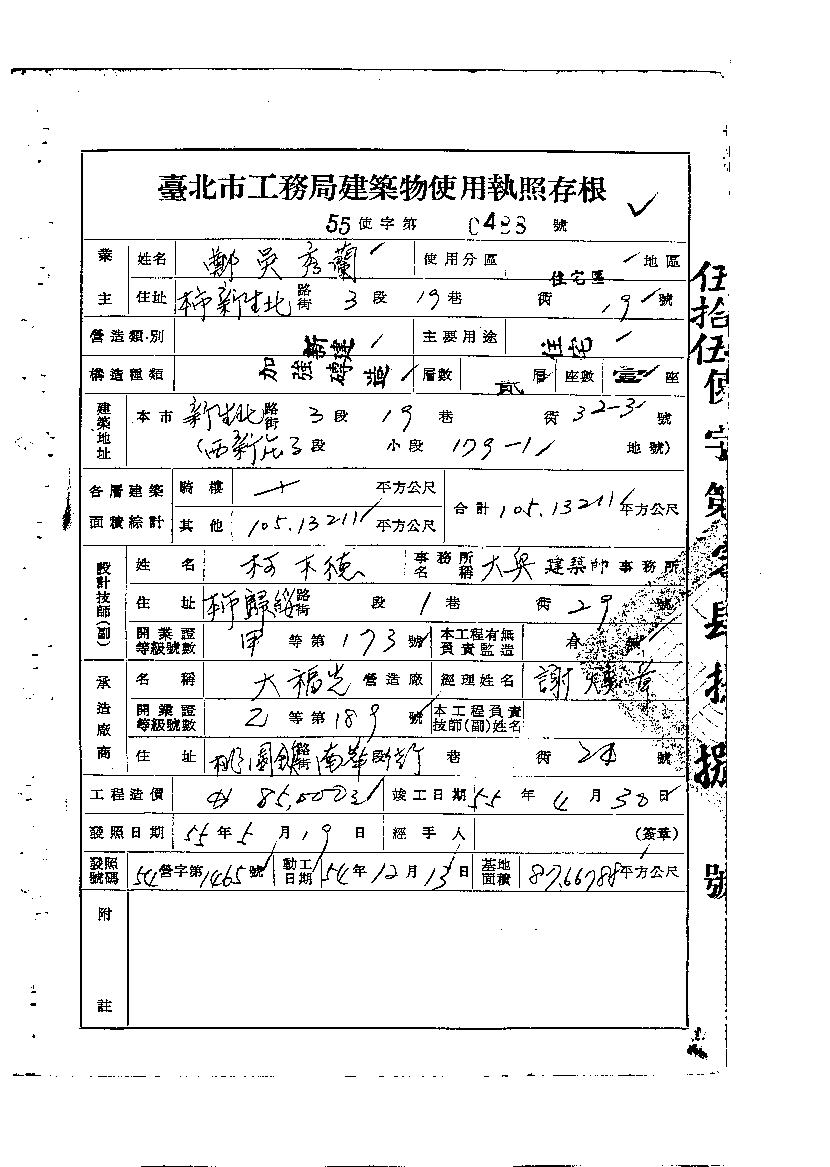 臺北市工務局建築物使用執照存根
55 使字第 0488 號
業主 姓名 鄭吳秀蘭 使用分區 住宅區 地區
住址 本市新生北路街 3段 19巷 街 19號
營造類別 新建 主要用途 住宅
構造種類 加強磚造 層數 貳層 座數 壹座
建築地址 本市 新生北路街 3段 19巷 街 32-3號
(西新庄子段 小段 179-1 地號)
各層建築面積綜計 騎樓 平方公尺 合計 105.13211 平方公尺
其他 105.13211 平方公尺
設計技師(副) 姓名 柯木德 事務所名稱 大奧建築師事務所
住址 本市歸綏路街 段 1巷 街 29號
開業證等級號數 甲等第173號 本工程有無負責監造
承造廠商 名稱 大福光營造廠 經理姓名 謝煥章
開業證等級號數 乙等第189號 本工程負責技師(副)姓名
住址 桃園鎮路街南華段街 巷 街 24號
工程造價 竣工日期 55年4月30日
發照日期 55年5月19日 經手人 (簽章)
發照號碼 54營字第1465號 動工日期 54年12月13日 基地面積 87.66788平方公尺
附註
伍拾伍使字第零肆捌捌號